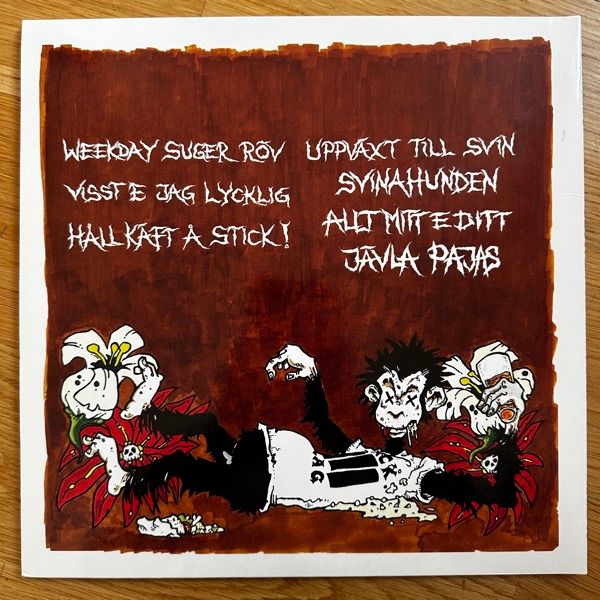 WEEKDAY SUGER RÖV
VISST E JAG LYCKLIG
HÅLL KÄFT Å STICK!
UPPVÄXT TILL SVIN
SVINAHUNDEN
ALLT MITT E DITT
JÄVLA PAJAS